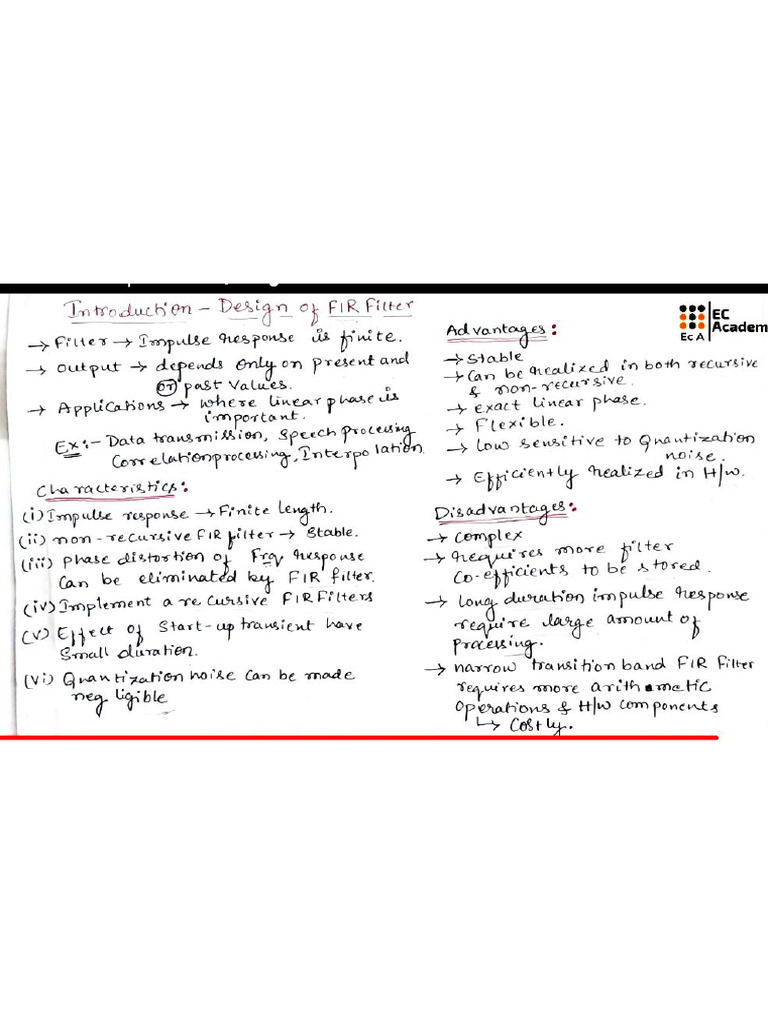 Introduction - Design of FIR Filter
→ Filter → Impulse response is finite.
→ Output → depends only on present and
(or) past values.
→ Applications → where linear phase is
important.
Ex:- Data transmission, Speech processing
Correlation processing, Interpolation
Characteristics:
(i) Impulse response → Finite length.
(ii) non-recursive FIR filter → Stable.
(iii) phase distortion of Frq response
Can be eliminated by FIR filter.
(iv) Implement a recursive FIR Filters
(v) Effect of Start-up transient have
Small duration.
(vi) Quantization noise can be made
neg ligible
EC
Academ
Ec A
Advantages:
→ Stable
→ Can be realized in both recursive
& non-recursive.
→ exact linear phase.
→ Flexible.
→ Low sensitive to Quantization
noise.
→ Efficiently realized in H/w.
Disadvantages:
→ Complex
→ requires more filter
Co-efficients to be stored.
→ long duration impulse response
require large amount of
processing.
→ narrow transition band FIR Filter
requires more arithmetic
Operations & H/w components
↳ Costly.